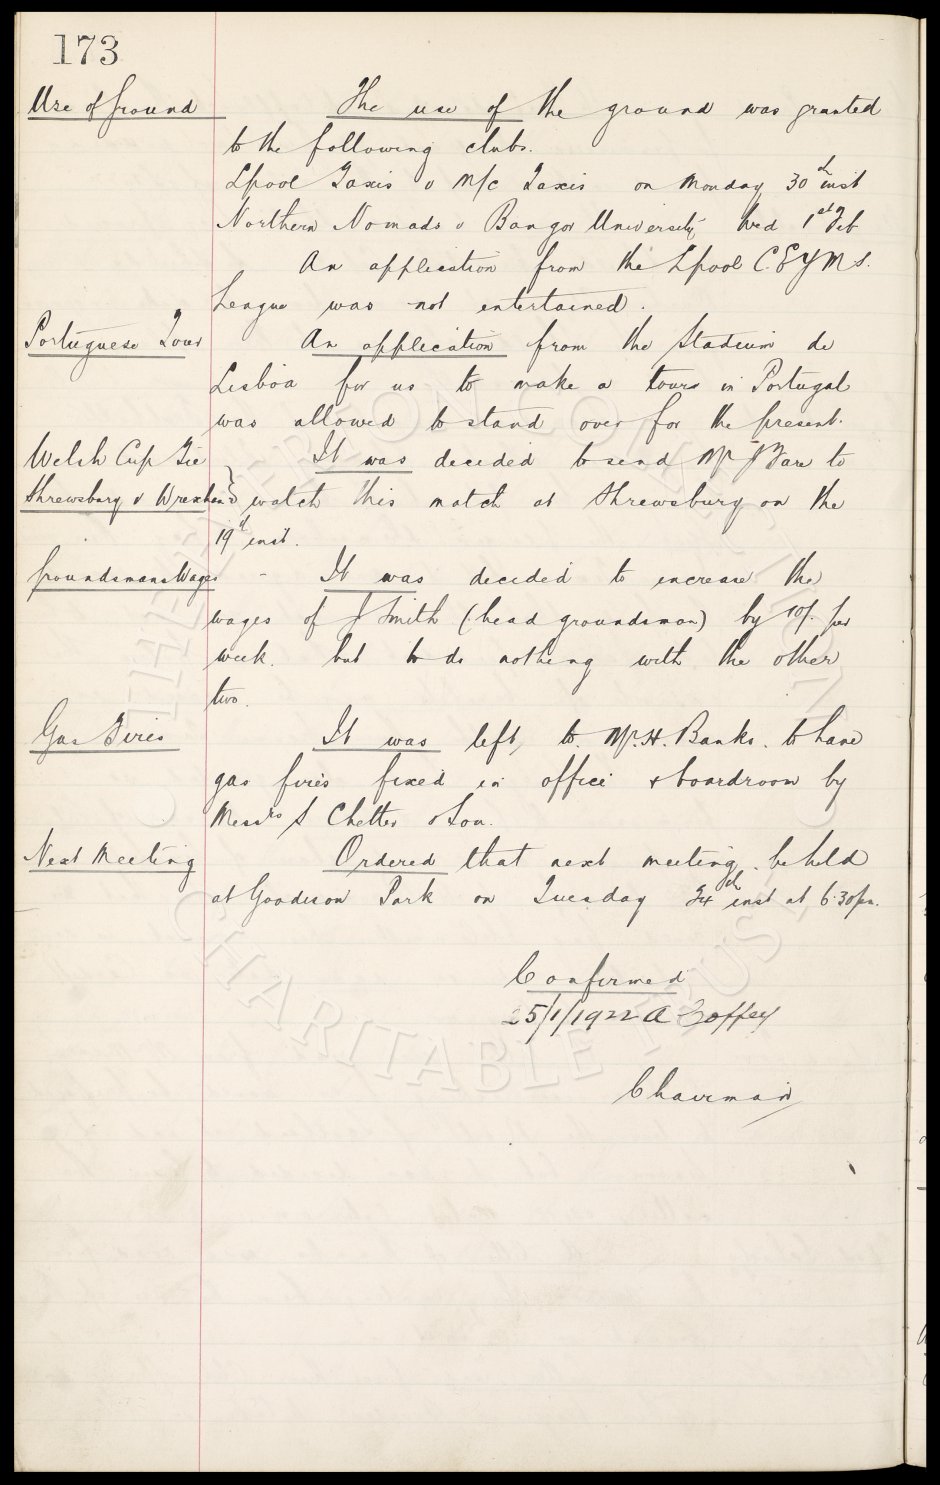 173
Use of Ground The use of the ground was granted
to the following clubs.
Lpool Taxis v M/c Taxis on Monday 30th inst
Northern Nomads v Bangor University Wed 1st Feb
An application from the Lpool C.E.Y.M.S.
League was not entertained.
Portuguese Tour An application from the Stadium de
Lisboa for us to make a tour in Portugal
was allowed to stand over for the present.
Welsh Cup Tie It was decided to send Mr to
Shrewsbury v Wrexham } watch this match at Shrewsbury on the
19th inst.
Groundsmans Wages - It was decided to increase the
wages of J Smith (head groundsman) by 10/- per
week. but to do nothing with the other
two.
Gas Fires It was left, to. Mr. H. Banks. to have
gas fires fixed in office & boardroom by
Messrs S & Son.
Next Meeting Ordered that next meeting be held
at Goodison Park on Tuesday 24th inst at 6.30pm.
Confirmed
25/1/1922 A Coffey
Chairman
THE EVERTON COLLECTION
CHARITABLE TRUST